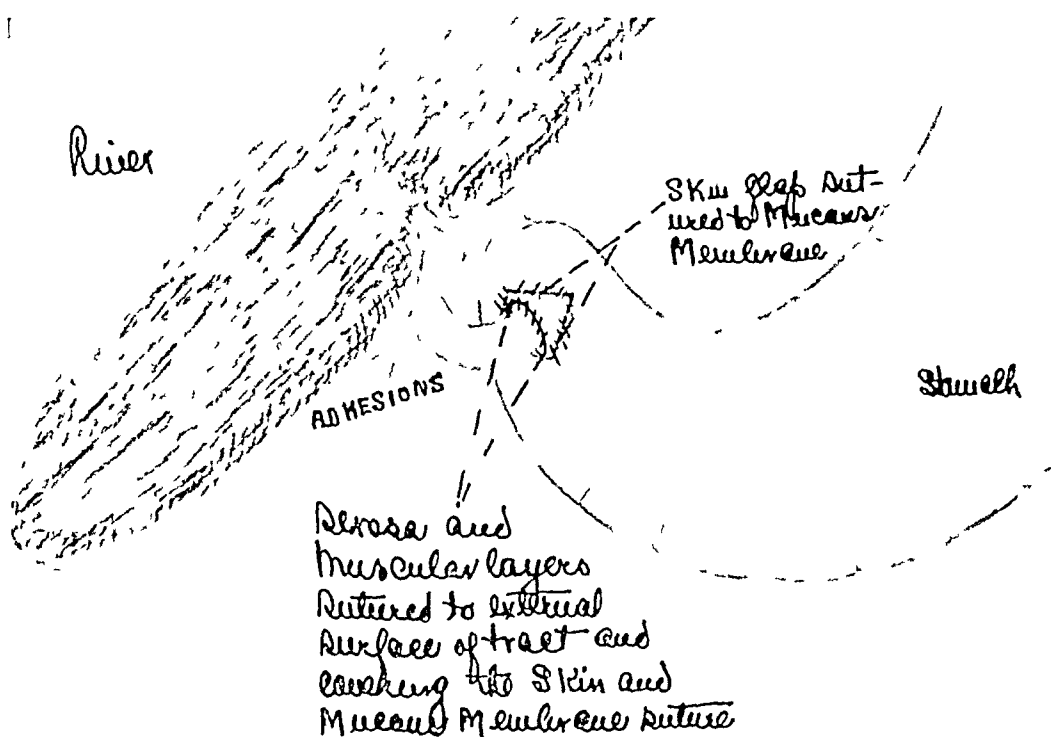 Liver
Skin flap sut-
ured to Mucous
Membrane
Stomach
ADHESIONS
Serosa and
Muscular layers
sutured to external
surface of tract and
covering the Skin and
Mucous Membrane suture